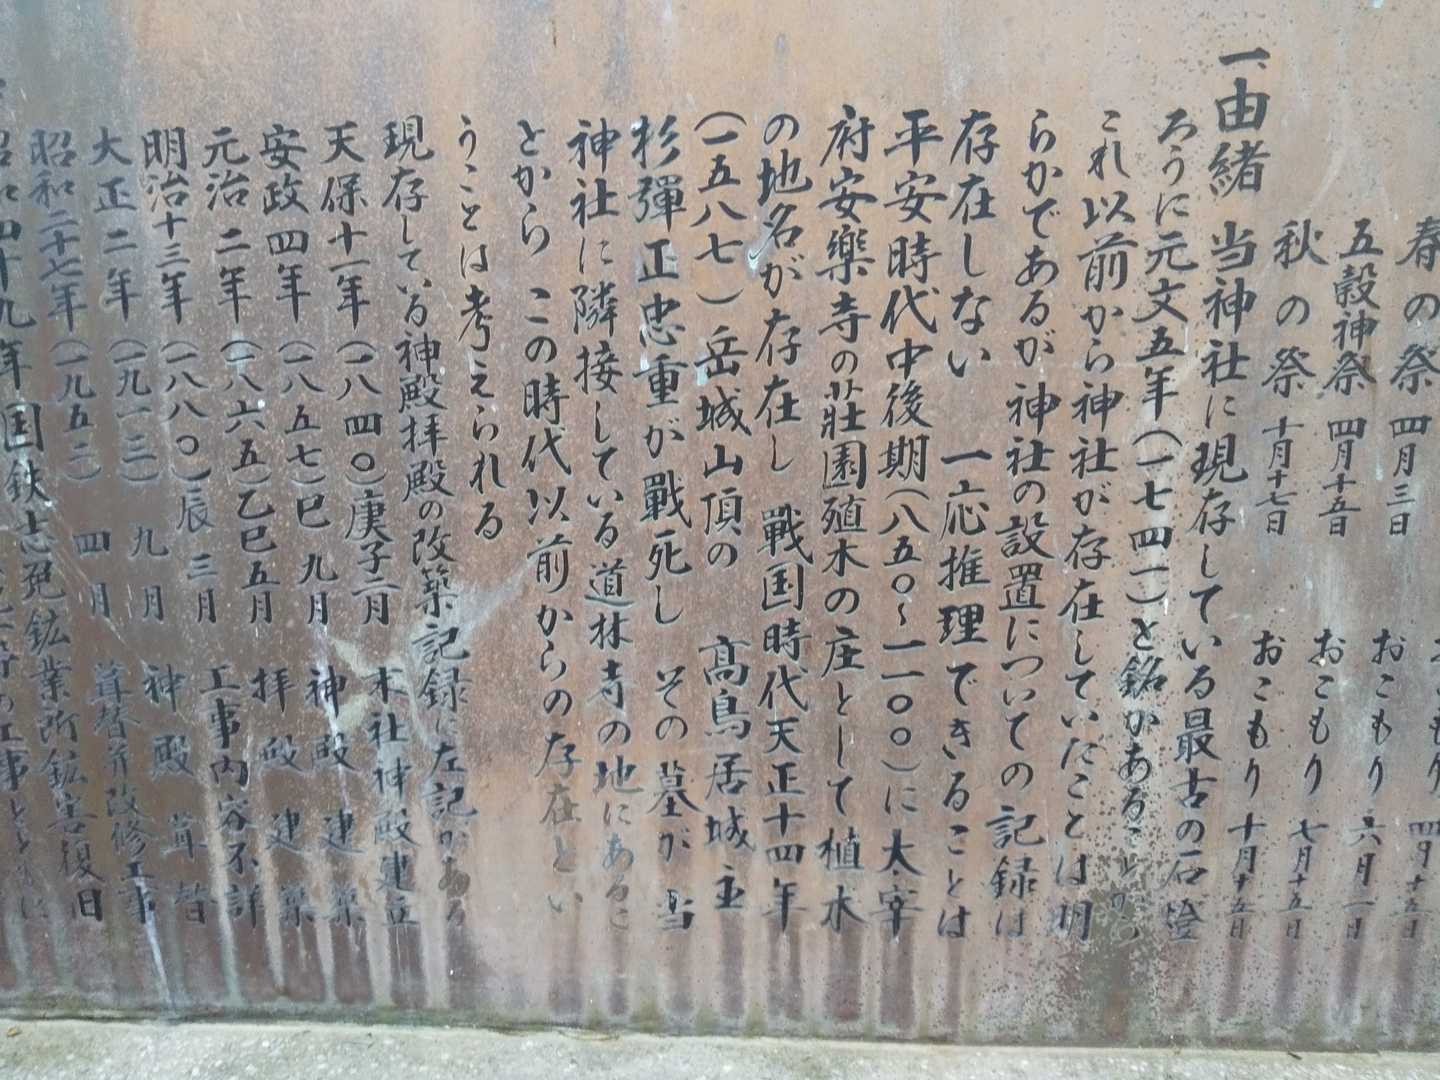 春の祭 四月三日
五穀神祭 四月十五日
秋の祭 十月十七日
おこもり 四月十五日
おこもり 六月一日
おこもり 七月十五日
おこもり 十月十五日
一、由緒 当神社に現存している最古の石燈
ろうに元文五年(一七四一)と銘があることから
これ以前から神社が存在していたことは明
らかであるが神社の設置についての記録は
存在しない 一応推理できることは
平安時代中後期(八五〇~一一〇〇)に太宰
府安楽寺の荘園殖木の庄として植木
の地名が存在し 戰国時代天正十四年
(一五八七)岳城山頂の 高鳥居城主
杉彈正忠重が戰死し その墓が当
神社に隣接している道林寺の地にあるこ
とから この時代以前からの存在とい
うことは考えられる
現存している神殿拝殿の改築記録に左記がある
天保十一年(一八四〇)庚子二月 本社神殿建立
安政四年(一八五七)巳 九月 神殿建築
元治二年(一八六五)乙巳五月 拝殿建築
工事内容不詳
明治十三年(一八八〇)辰 三月 神殿葺替
大正二年(一九一三) 九月 葺替并改修工事
昭和二十七年(一九五二) 四月
昭和四十九年国鉄志免鉱業所鉱害復旧